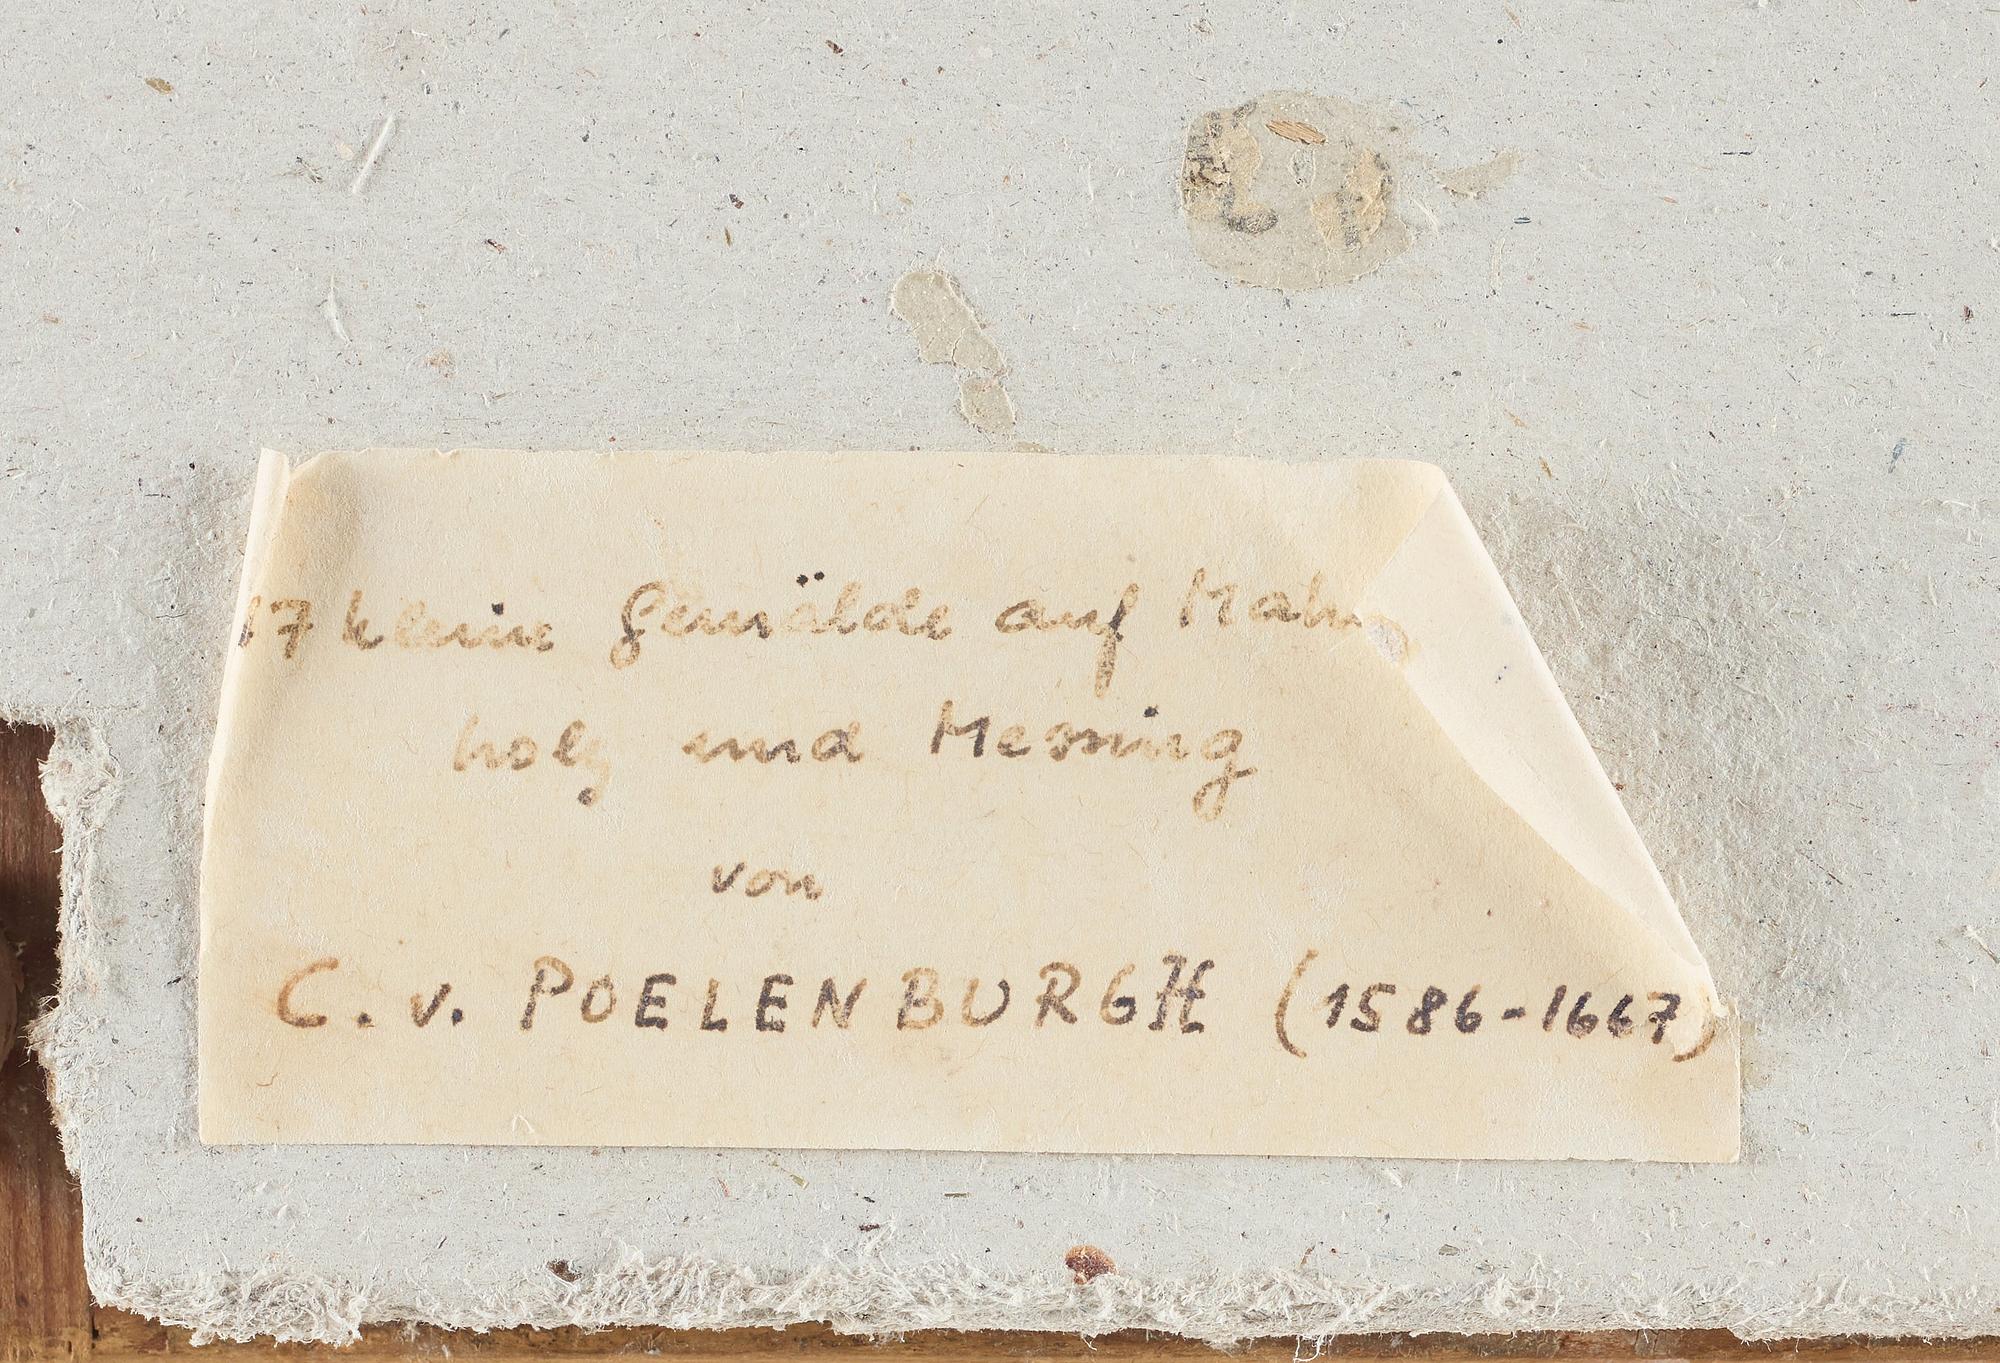 17 kleine Gemälde auf Mahag
holz und Messing
von
C. v. POELENBURGH (1586-1667)